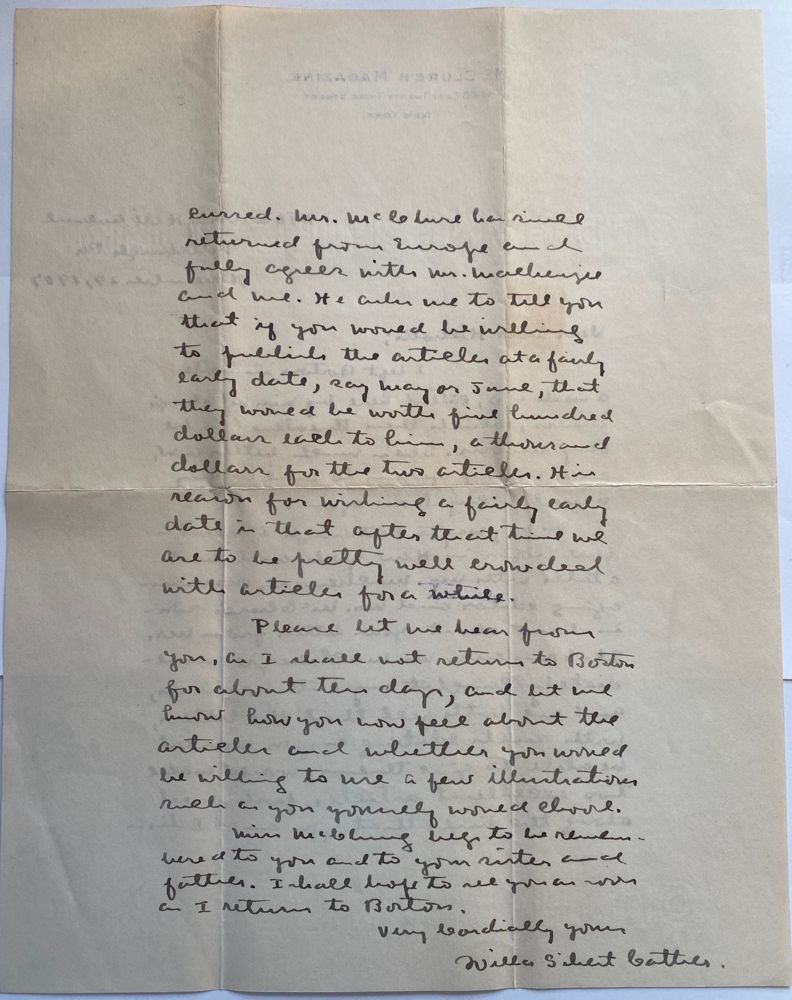 McCLURE'S MAGAZINE
44 EAST TWENTY-THIRD STREET
NEW YORK
curred. Mr. McClure has since
returned from Europe and
fully agrees with Mr. Mackenzie
and me. He asks me to tell you
that if you would be willing
to publish the articles at a fairly
early date, say May or June, that
they would be worth five hundred
dollars each to him, a thousand
dollars for the two articles. His
reason for wishing a fairly early
date is that after that time we
are to be pretty well crowded
with articles for a while.
Please let me hear from
you, as I shall not return to Boston
for about ten days, and let me
know how you now feel about the
articles and whether you would
be willing to use a few illustrations
such as you yourself would choose.
Miss McClung begs to be remem-
bered to you and to your sister and
father. I shall hope to see you as soon
as I return to Boston.
Very Cordially yours
Willa Sibert Cather.